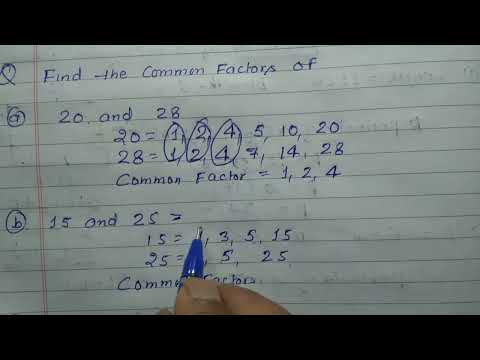 Q Find the Common Factors of
(a) 20 and 28
20 = 1, 2, 4, 5, 10, 20
28 = 1, 2, 4, 7, 14, 28
Common Factor = 1, 2, 4
(b) 15 and 25 =
15 = , 3, 5, 15
25 = , 5, 25
Common Factors